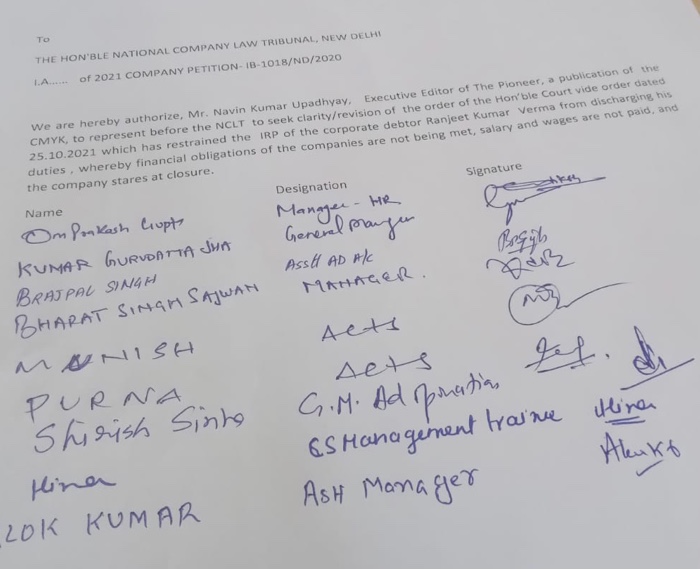 To
THE HON'BLE NATIONAL COMPANY LAW TRIBUNAL, NEW DELHI
I.A...... of 2021 COMPANY PETITION- IB-1018/ND/2020
We are hereby authorize, Mr. Navin Kumar Upadhyay, Executive Editor of The Pioneer, a publication of the
CMYK, to represent before the NCLT to seek clarity/revision of the order of the Hon'ble Court vide order dated
25.10.2021 which has restrained the IRP of the corporate debtor Ranjeet Kumar Verma from discharging his
duties , whereby financial obligations of the companies are not being met, salary and wages are not paid, and
the company stares at closure.
Name Designation Signature
Om Prakash Gupta Manager - HR
KUMAR GURUDATTA JHA General Manger
BRAJPAL SINGH Asstt AD A/c
BHARAT SINGH SAJWAN MANAGER.
MUNISH Acts
PURNA Acts
Shirish Sinha G.M. Ad
Hina CS Management trainee Hina
LOK KUMAR Asst Manager